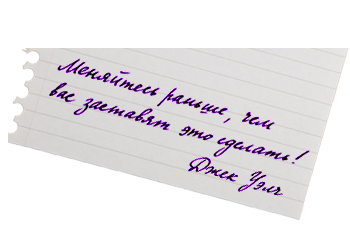 Меняйтесь раньше, чем
вас заставят это сделать!
Джек Уэлч